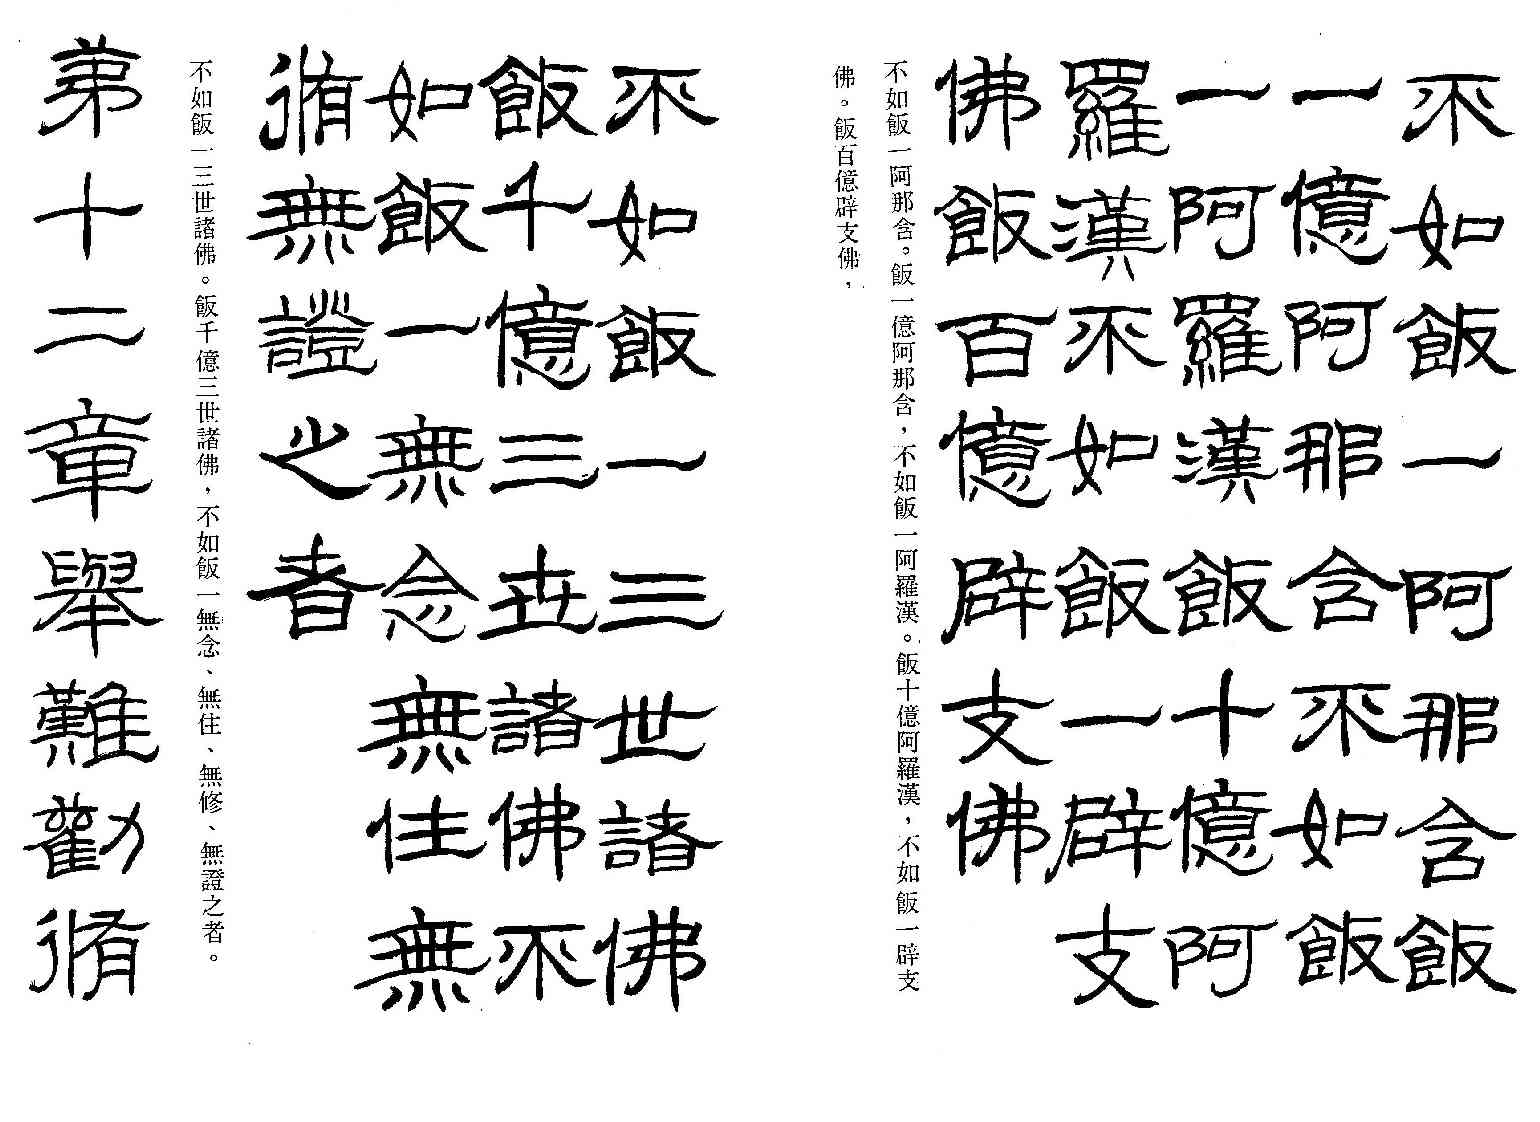 不如飯一阿那含飯
一億阿那含不如飯
一阿羅漢飯十億阿
羅漢不如飯一辟支
佛飯百億辟支佛
不如飯一阿那含。飯一億阿那含，不如飯一阿羅漢。飯十億阿羅漢，不如飯一辟支
佛。飯百億辟支佛，
不如飯一三世諸佛
飯千億三世諸佛不
如飯一無念無住無
脩無證之者
不如飯一三世諸佛。飯千億三世諸佛，不如飯一無念、無住、無修、無證之者。
第十二章舉難勸脩